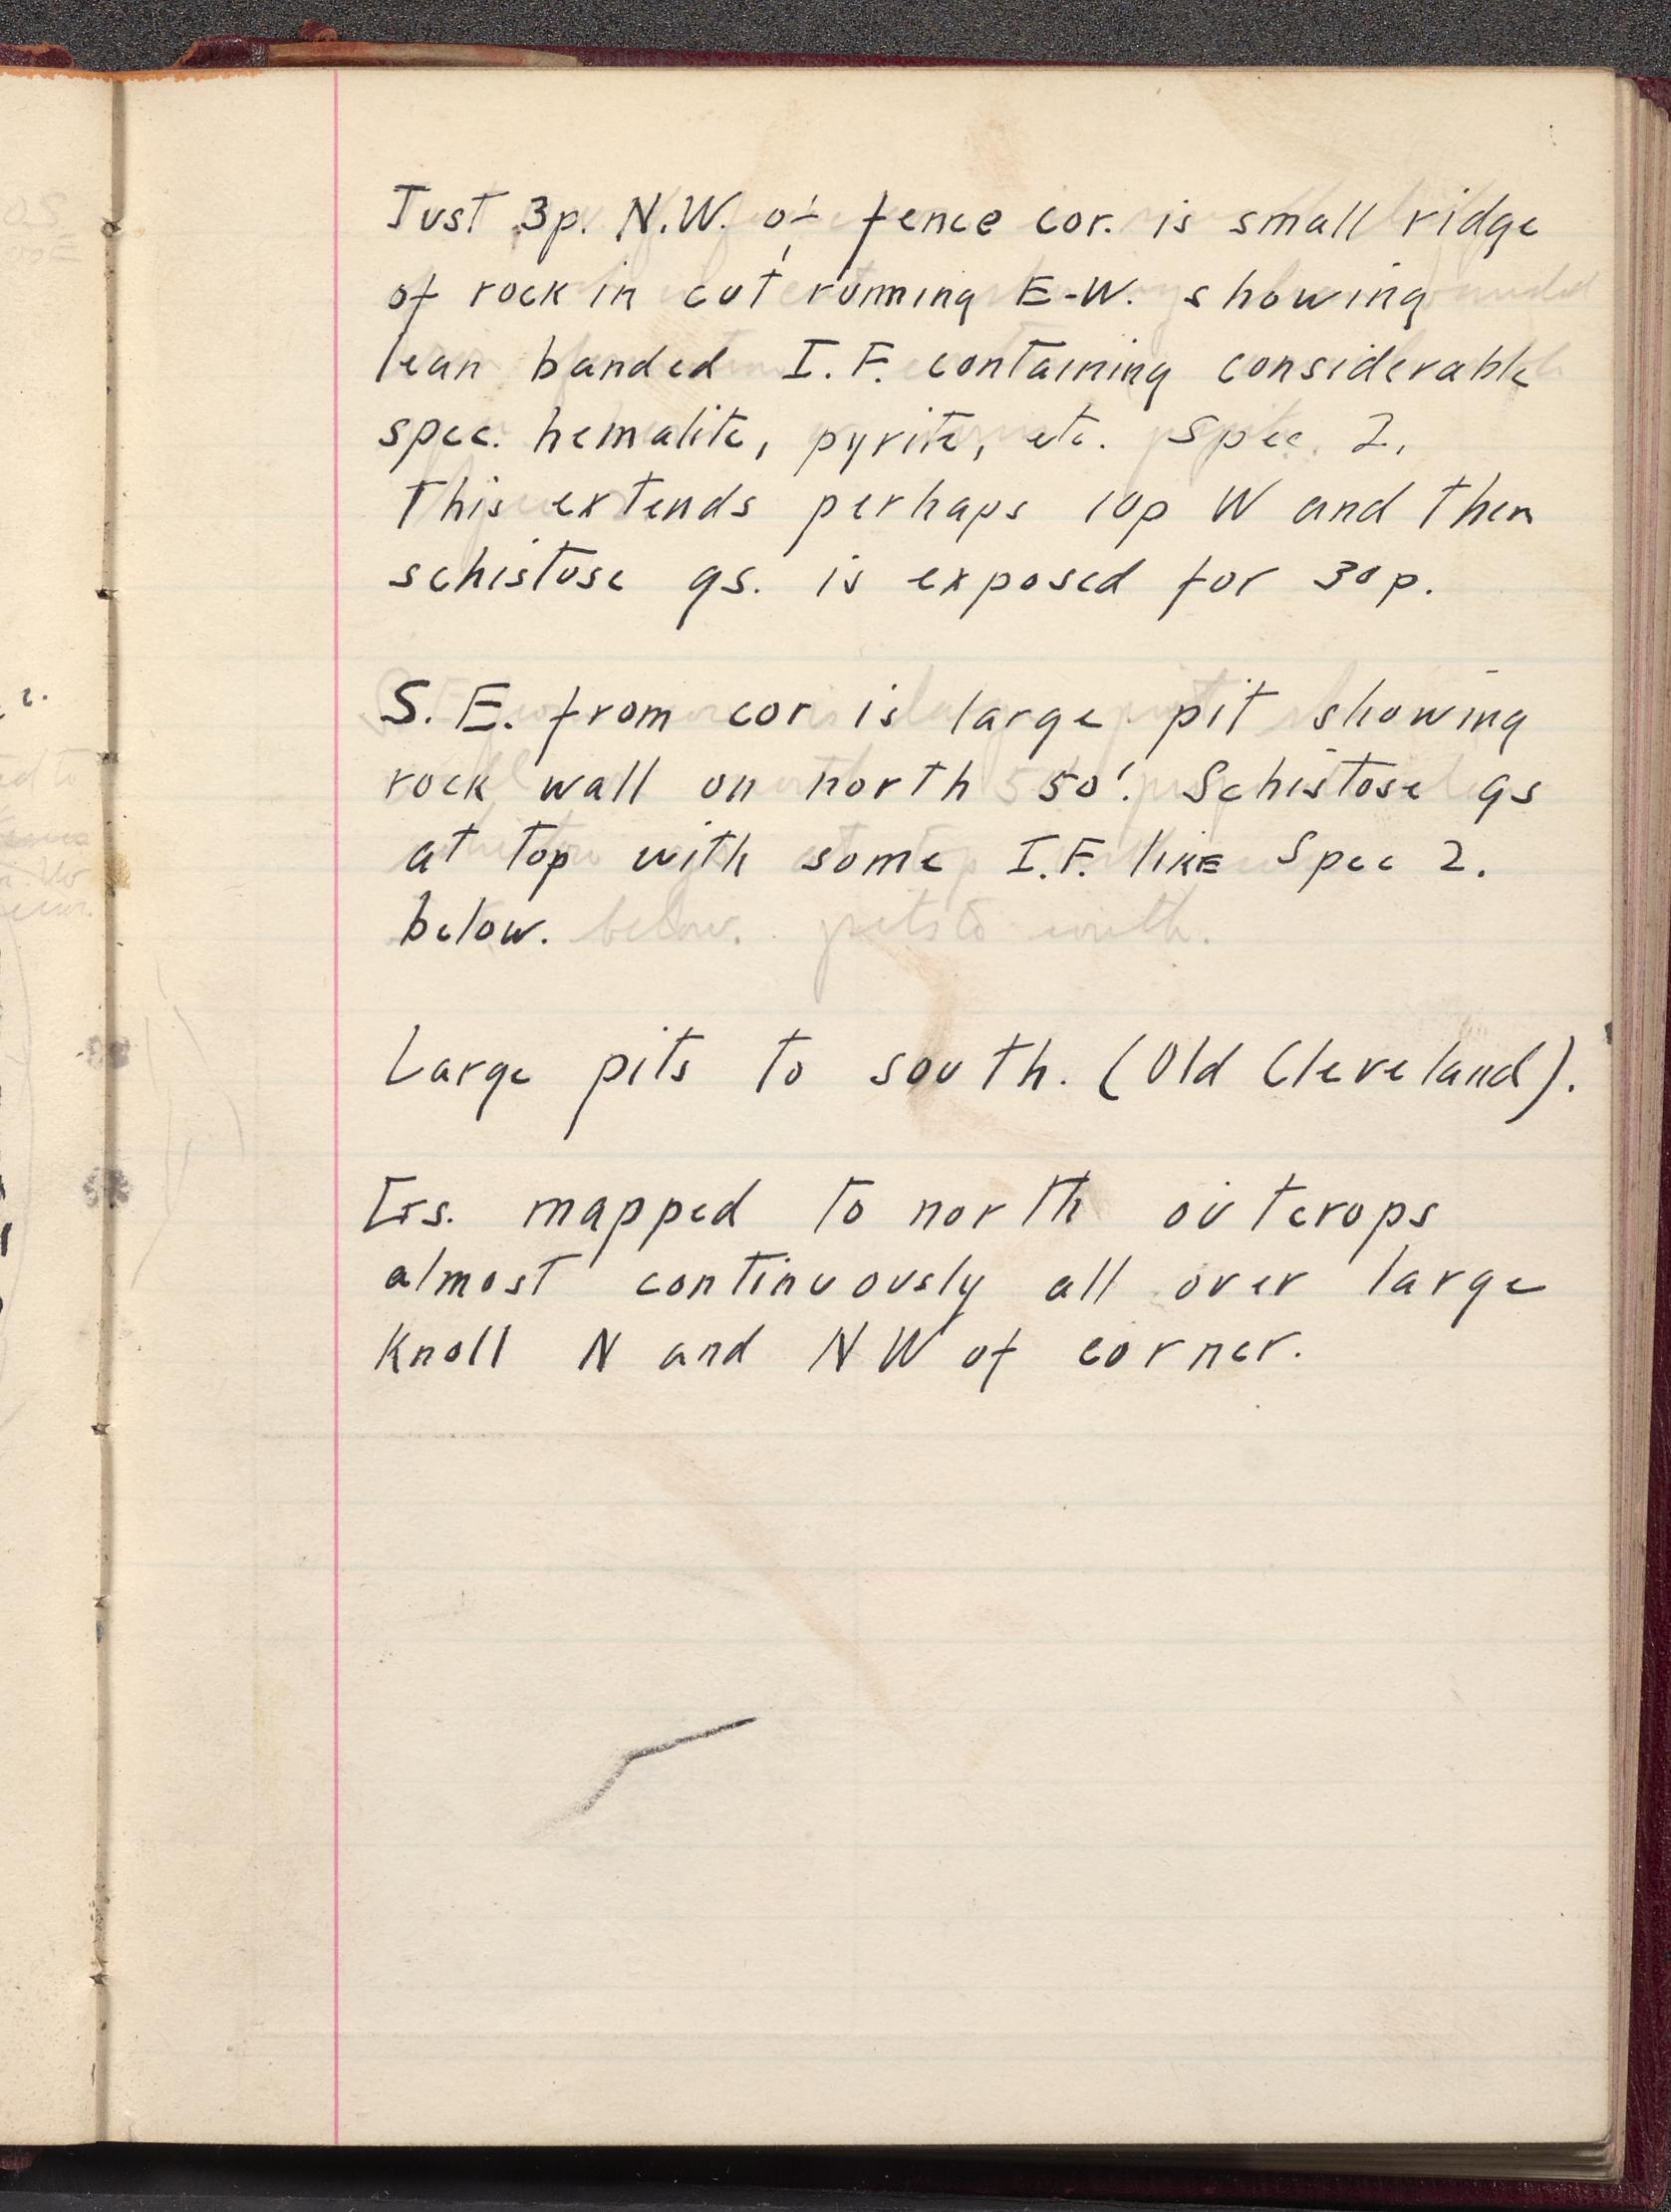 Just 3p. N.W. of fence cor. is small ridge
of rock in cut running E-W. showing
lean banded I.F. containing considerable
spec. hematite, pyrite, etc. Spec. 2.
This extends perhaps 10p W and then
schistose gs. is exposed for 30p.
S.E. from cor is large pit showing
rock wall on north 50'. Schistose gs
at top with some I.F. like Spec 2.
below.
Large pits to south. (Old Cleveland).
Grs. mapped to north outcrops
almost continuously all over large
Knoll N and NW of corner.